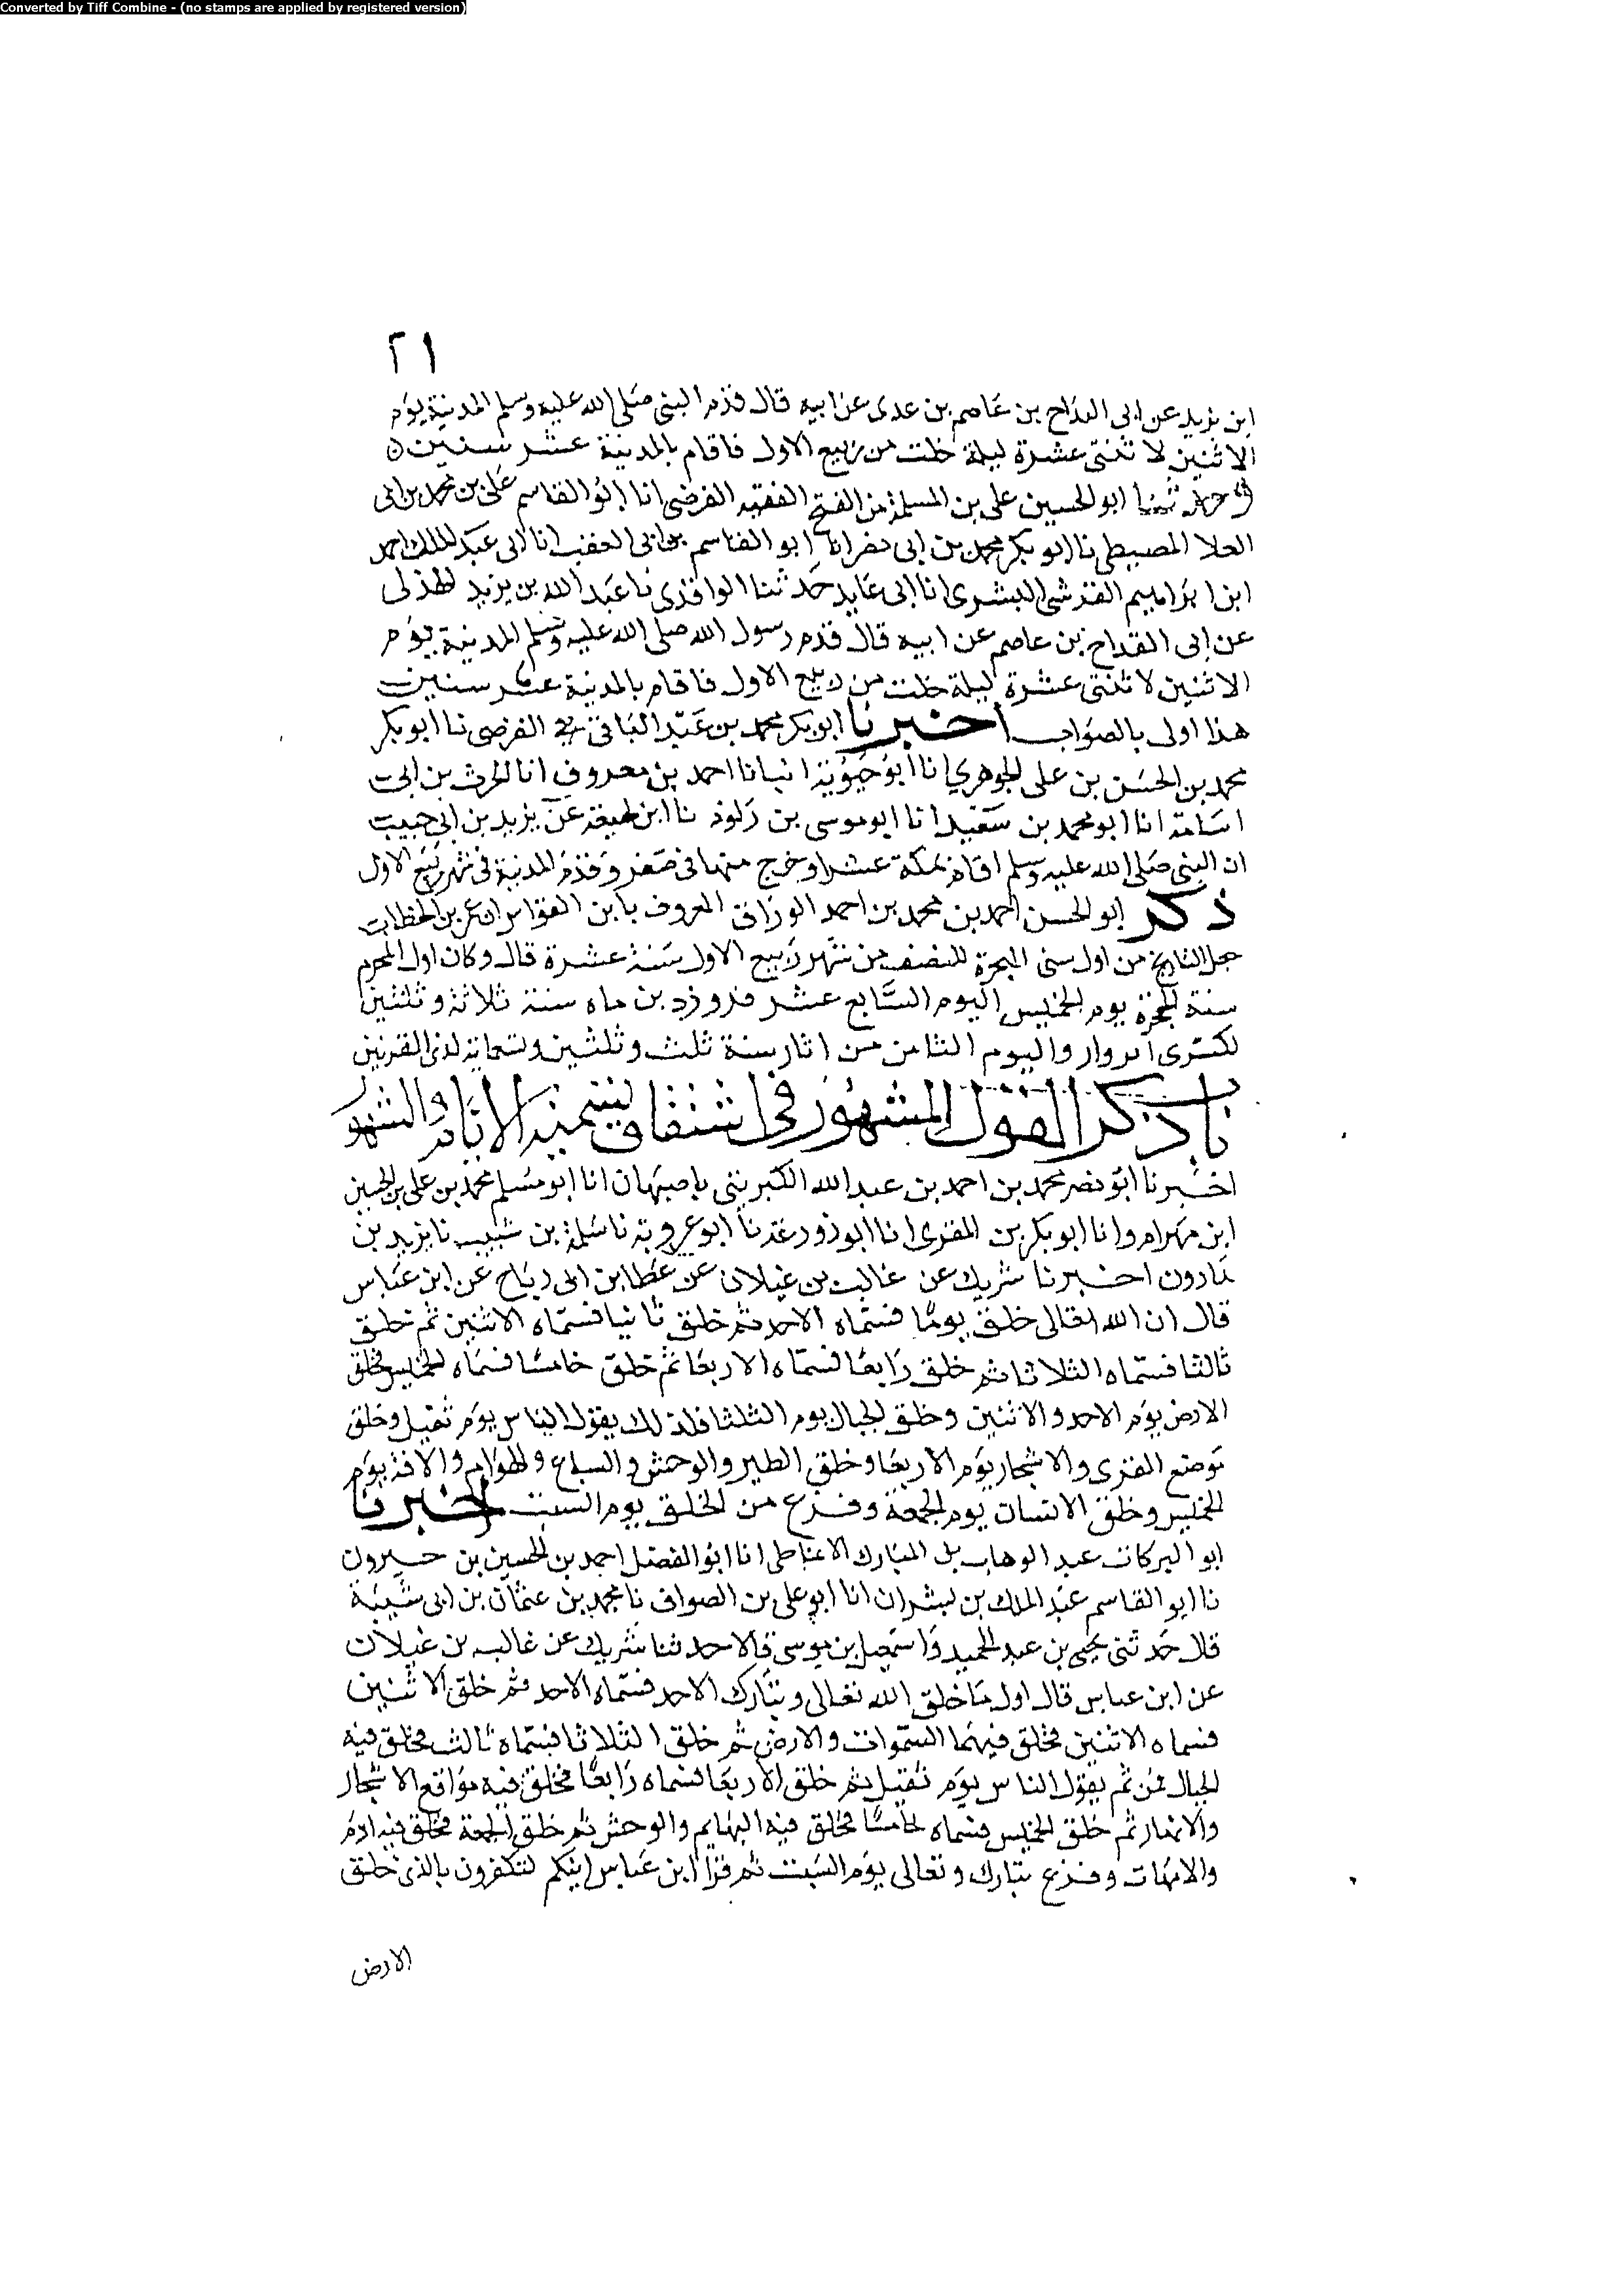 Converted by Tiff Combine - (no stamps are applied by registered version)
٢١
ابن يزيد عن ابى البداح بن عاصم بن عدى عن ابيه قال قدم النبى صلى الله عليه وسلم المدينة يوم
الاثنين لاثنتى عشرة ليلة خلت من ربيع الاول فاقام بالمدينة عشر سنين
ابو الحسين على بن المسلم بن الفتح الفقيه الفرضى انا ابو القاسم على بن محمد بن ابى
العلا المصيصى نا ابو بكر محمد بن ابى نصر انا ابو القاسم بن ابى العقب انا ابى عبد الملك احمد
ابن ابراهيم القرشى البسرى انا ابى عايد حدثنا الواقدى نا عبد الله بن يزيد الهذلى
عن ابى القداح بن عاصم عن ابيه قال قدم رسول الله صلى الله عليه وسلم المدينة يوم
الاثنين لاثنتى عشرة ليلة خلت من ربيع الاول فاقام بالمدينة عشر سنين
هذا اولى بالصواب اخبرنا ابو بكر محمد بن عبد الباقى الفرضى نا ابو بكر
محمد بن الحسن بن على الجوهري انا ابو حيوية انبانا احمد بن معروف انا الحرث بن ابى
اسامة انا ابو محمد بن سعيد انا ابو موسى بن داود نا ابن لهيعة عن يزيد بن ابى حبيب
ان النبى صلى الله عليه وسلم اقام بمكة عشرا وخرج منها فى صفر وقدم المدينة فى شهر ربيع الاول
ذكر ابو الحسن احمد بن محمد بن احمد الوراق المعروف بابن القواس ان عمر بن الخطاب
جعل التاريخ من اول سنى الهجرة للنصف من شهر ربيع الاول سنة عشرة قال وكان اول المحرم
سنة الهجرة يوم الخميس اليوم السابع عشر من ماه سنة ثلاثة وثلثين
لكسرى ابروار واليوم الثامن من اثار سنة ثلث وثلثين وتسماية لذى القرنين
باب ذكر القول المشهور فى اشتقاق تسمية الايام والشهور
اخبرنا ابو نصر محمد بن احمد بن عبد الله الكبريتى باصبهان انا ابو مسلم محمد بن على بن الحسين
ابن مهرام وانا ابو بكر بن المقرى انا ابو عروبة نا سلمة بن شبيب نا يزيد بن
هارون اخبرنا شريك عن غالب بن غيلان عن عطا بن ابى رباح عن ابن عباس
قال ان الله تعالى خلق يوما فسماه الاحد ثم خلق ثانيا فسماه الاثنين ثم خلق
ثالثا فسماه الثلاثا ثم خلق رابعا فسماه الاربعا ثم خلق خامسا فسماه الخميس فخلق
الارض يوم الاحد والاثنين وخلق الجبال يوم الثلثا فلذلك يقول الناس يوم ثقيل وخلق
موضع القرى والاشجار يوم الاربعا وخلق الطير والوحش والسباع والهوام والافة يوم
الخميس وخلق الانسان يوم الجمعة وفرغ من الخلق يوم السبت اخبرنا
ابو البركات عبد الوهاب بن المبارك الانماطى انا ابو الفضل احمد بن الحسين بن خيرون
نا ابو القاسم عبد الملك بن بشران انا ابو على بن الصواف نا محمد بن عثمان بن ابى شيبة
قال حدثنى يحيى بن عبد الحميد واسمعيل بن موسى قالا حدثنا شريك عن غالب بن غيلان
عن ابن عباس قال اول ما خلق الله تعالى وتبارك الاحد فسماه الاحد ثم خلق الاثنين
فسماه الاثنين فخلق فيهما السموات والارض ثم خلق الثلاثا فسماه ثالث فخلق فيه
الجبال فمن ثم يقول الناس يوم ثقيل ثم خلق الاربعا فسماه رابعا فخلق فيه مواقع الاشجار
والانهار ثم خلق الخميس فسماه خامسا فخلق فيه البهايم والوحش ثم خلق الجمعة فخلق فيه ادم
والامهات وفرغ تبارك وتعالى يوم السبت ثم قرا ابن عباس اينكم لتكفرون بالذى خلق
الارض